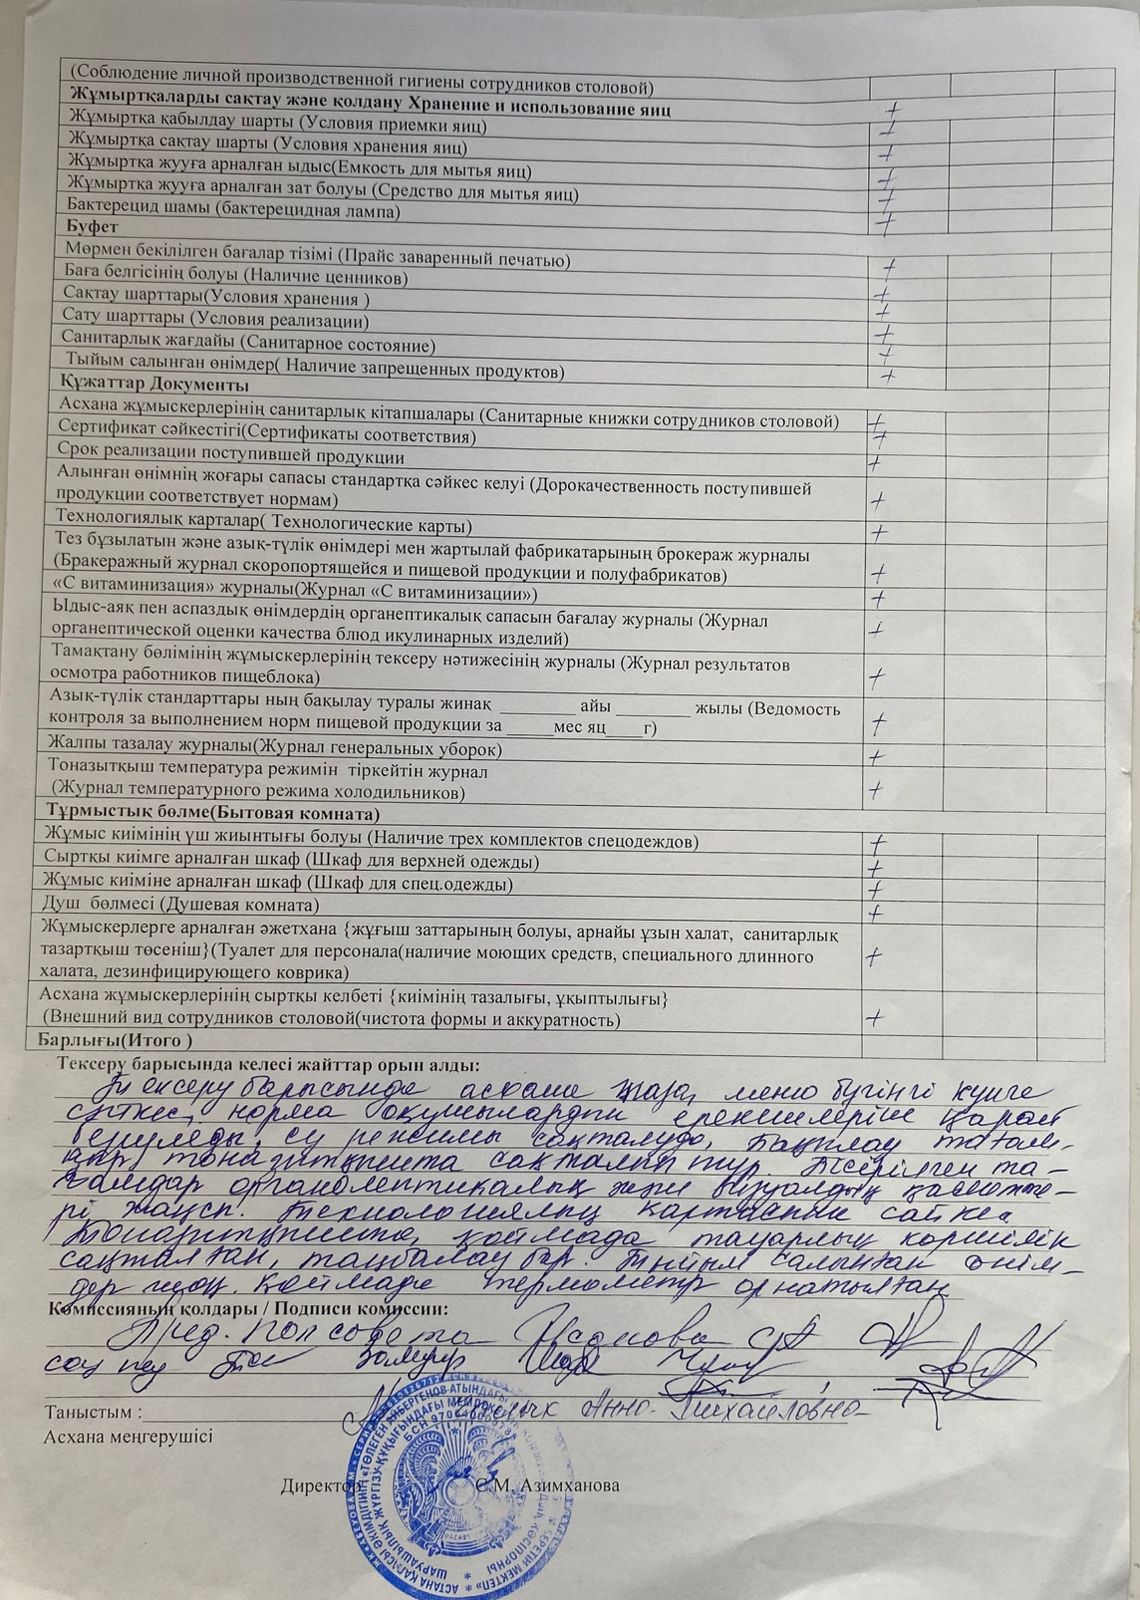 (Соблюдение личной производственной гигиены сотрудников столовой)
Жұмыртқаларды сақтау және қолдану Хранение и использование яиц +
Жұмыртка қабылдау шарты (Условия приемки яиц) +
Жұмыртка сақтау шарты (Условия хранения яиц) +
Жұмыртка жууға арналған ыдыс(Емкость для мытья яиц) +
Жұмыртка жууға арналған зат болуы (Средство для мытья яиц) +
Бактерецид шамы (бактерецидная лампа) +
Буфет
Мөрмен бекілілген бағалар тізімі (Прайс заваренный печатью) +
Баға белгісінің болуы (Наличие ценников) +
Сақтау шарттары(Условия хранения ) +
Сату шарттары (Условия реализации) +
Санитарлық жағдайы (Санитарное состояние) +
Тыйым салынған өнімдер( Наличие запрещенных продуктов) +
Құжаттар Документы
Асхана жұмыскерлерінің санитарлық кітапшалары (Санитарные книжки сотрудников столовой) +
Сертификат сәйкестігі(Сертификаты соответствия) +
Срок реализации поступившей продукции +
Алынған өнімнің жоғары сапасы стандартқа сәйкес келуі (Дорокачественность поступившей
продукции соответствует нормам) +
Технологиялық карталар( Технологические карты) +
Тез бұзылатын және азық-түлік өнімдері мен жартылай фабрикатарының брокераж журналы
(Бракеражный журнал скоропортящейся и пищевой продукции и полуфабрикатов) +
«С витаминизация» журналы(Журнал «С витаминизации») +
Ыдыс-аяқ пен аспаздық өнімдердің органептикалық сапасын бағалау журналы (Журнал
органептической оценки качества блюд икулинарных изделий) +
Тамақтану бөлімінің жұмыскерлерінің тексеру нәтижесінің журналы (Журнал результатов
осмотра работников пищеблока) +
Азық-түлік стандарттары ның бақылау туралы жинақ ________ айы ________ жылы (Ведомость
контроля за выполнением норм пищевой продукции за _____мес яц____г) +
Жалпы тазалау журналы(Журнал генеральных уборок) +
Тоназытқыш температура режимін тіркейтін журнал
(Журнал температурного режима холодильников) +
Тұрмыстық бөлме(Бытовая комната)
Жұмыс киімінің үш жиынтығы болуы (Наличие трех комплектов спецодеждов) +
Сыртқы киімге арналған шкаф (Шкаф для верхней одежды) +
Жұмыс киіміне арналған шкаф (Шкаф для спец.одежды) +
Душ бөлмесі (Душевая комната) +
Жұмыскерлерге арналған әжетхана {жұғыш заттарының болуы, арнайы ұзын халат, санитарлық
тазартқыш төсеніш}(Туалет для персонала(наличие моющих средств, специального длинного
халата, дезинфицирующего коврика) +
Асхана жұмыскерлерінің сыртқы келбеті {киімінің тазалығы, ұқыптылығы}
(Внешний вид сотрудников столовой(чистота формы и аккуратность) +
Барлығы(Итого )
Тексеру барысында келесі жайттар орын алды:
Тексеру барысында асхана таза, меню бүгінгі күнге
сәйкес, норма оқушылардың қарай
беруледі, су режимы сақталуда, Бақылау тағам-
дар тоназытқышта сақталып тұр. та-
ғамдар органолептикалық және визуалдық
жақсы. Технологиялық картасына сәйкес
қоймада тауарлық көршілік
сақталған, таңбалау бар. Тыйым салынған өнім-
дер жоқ. Қоймада термометр орнатылған
Комиссияның қолдары / Подписи комиссии:
Пред. Поп совета
Таныстым : Анна Михайловна
Асхана меңгерушісі
Директор С.М. Азимханова